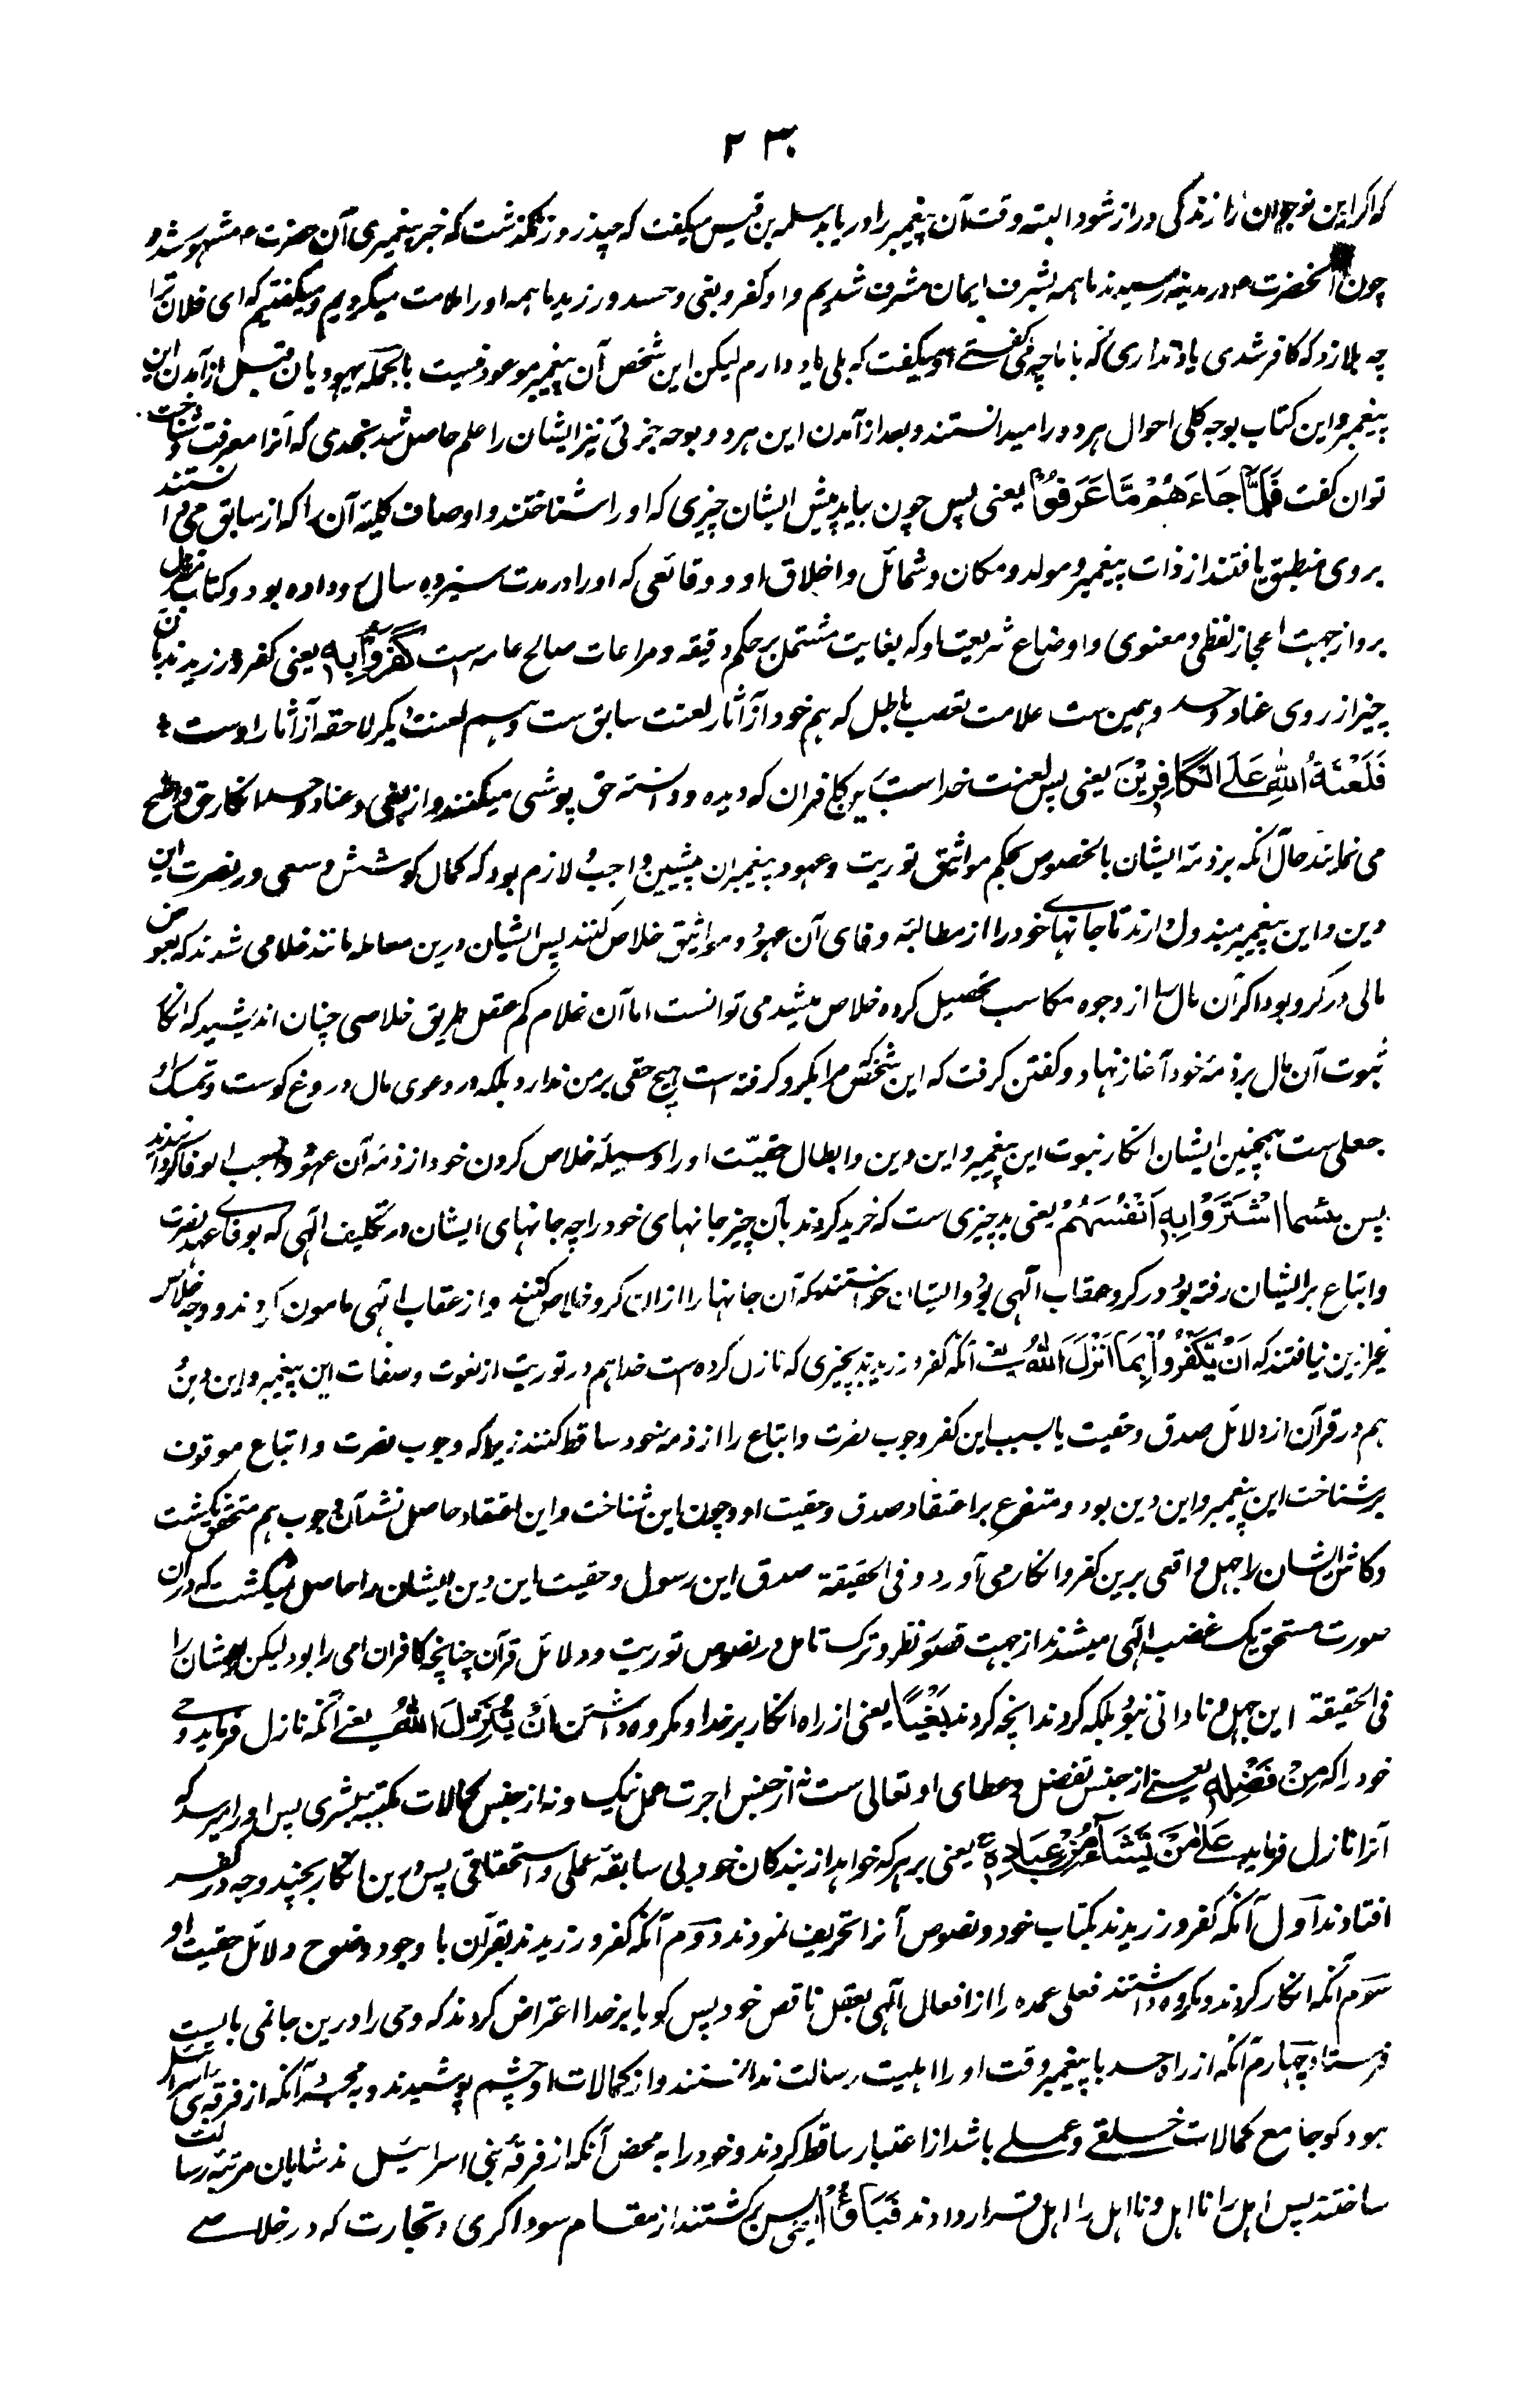 ۲۳۰
که اگر این نوجوان را زندگی دراز شود البته وقت آن پیغمبر را دریابد سلمه بن قیس میگفت که چند روز نگذشت که خبر پیغمبری آن حضرت ۴ مشهور شد و
چون آنحضرت ۴ در مدینه رسیدند ما همه بشرف ایمان مشرف شدیم و او کفر و بغی و حسد ورزید ما همه او را ملامت میکردیم و میگفتیم که ای فلان ترا
چه بلا زد که کافر شدی یاد نداری که با ما چه می گفتی او میگفت که بلی یاد دارم لیکن این شخص آن پیغمبر موعود نیست بالجمله یهودیان قبل از آمدن این
پیغمبر و این کتاب بوجه کلی احوال هر دو را میدانستند و بعد از آمدن این هر دو بوجه جزئی نیز ایشان را علم حاصل شد بحدی که آنرا معرفت و شناخت
توان گفت فَلَمَّا جَاءَهُمْ مَّا عَرَفُوْا یعنی پس چون بیاید پیش ایشان چیزی که او را شناختند و اوصاف کلیه آن را که از سابق می دانستند
بر وی منطبق یافتند از ذات پیغمبر و مولد و مکان و شمائل و اخلاق او و وقائعی که او را در مدت سیزده سال رو داده بود و کتاب منزل
برو از جهت اعجاز لفظی و معنوی و اوضاع شریعت او که بغایت مشتمل بر حکم دقیقه و مراعات مصالح عامه است كَفَرُوْا بِهٖ یعنی کفر ورزیدند بآن
چیز از روی عناد و حسد و همین ست علامت تعصب باطل که هم خود از آثار لعنت سابق ست و هم لعنت دیگر لاحقه از آثار اوست
فَلَعْنَةُ اللّٰهِ عَلَى الْكَافِرِيْنَ یعنی پس لعنت خداست بر کافران که دیده و دانسته حق پوشی میکنند و از بغی و عناد و حسد انکار حق واضح
می نمایند حال آنکه بر ذمه ایشان بالخصوص بحکم مواثیق توریت و عهود پیغمبران پیشین واجب و لازم بود که کمال کوشش و سعی در نصرت این
دین و این پیغمبر مبذول دارند تا جانهای خود را از مطالبه وفای آن عهود و مواثیق خلاص کنند پس ایشان درین معامله مانند غلامی شدند که بعوض
مالی در گرو بود اگر آن مال را از وجوه مکاسب تحصیل کرده خلاص میشد می توانست اما آن غلام کم عقل طریق خلاصی چنان اندیشید که انکار
ثبوت آن مال بر ذمه خود آغاز نهاد و گفتن گرفت که این شخص مرا بگرو گرفته است هیچ حقی بر من ندارد بلکه در دعوی مال دروغ گوست و تمسک او
جعلی ست همچنین ایشان انکار نبوت این پیغمبر و این دین و ابطال حقیت او را وسیله خلاص کردن خود از ذمه آن عهود واجب الوفا گردانیدند
پس بِئْسَمَا اشْتَرَوْا بِهٖ اَنْفُسَهُمْ یعنی بد چیزی ست که خرید کردند بآن چیز جانهای خود را چه جانهای ایشان در تکلیف الٰهی که بوفای عهد نصرت
و اتباع بر ایشان رفته بود در گرو عقاب الٰهی بود و ایشان خواستند که آن جانها را از ان گرو خلاص کنند و از عقاب الٰهی مامون گردند و وجه خلاص
غیر ازین نیافتند که اَنْ يَّكْفُرُوْا بِمَا اَنْزَلَ اللّٰهُ یعنی آنکه کفر ورزیدند بچیزی که نازل کرده ست خدا هم در توریت از نعوت و صفات این پیغمبر و این دین و
هم در قرآن از دلائل صدق و حقیت تا بسبب این کفر وجوب نصرت و اتباع را از ذمه خود ساقط کنند زیرا که وجوب نصرت و اتباع موقوف
بر شناخت این پیغمبر و این دین بود و متفرع بر اعتقاد صدق و حقیت او و چون این شناخت و این اعتقاد حاصل نشد آن وجوب هم متحقق نگشت
و کاش ایشان را جهل واقعی برین کفر و انکار می آورد و فی الحقیقة صدق این رسول و حقیت این دین ایشان را حاصل نمیگشت که در ان
صورت مستحق یک غضب الٰهی میشدند از جهت قصور نظر و ترک تامل در نصوص توریت و دلائل قرآن چنانچه کافران امی را بود لیکن ایشان را
فی الحقیقة این جهل و نادانی نبود بلکه کردند آنچه کردند بَغْيًا یعنی از راه انکار بر خدا و مکروه داشتن اَنْ يُّنَزِّلَ اللّٰهُ یعنی آنکه نازل فرماید وحی
خود را که مِنْ فَضْلِهٖ یعنی از جنس تفضل و عطای او تعالی ست نه از جنس اجرت عمل نیک و نه از جنس کمالات مکتسبه بشری پس او را میرسد که
آنرا نازل فرماید عَلٰى مَنْ يَّشَآءُ مِنْ عِبَادِهٖ یعنی بر هر که خواهد از بندگان خود بی سابقه عملی و استحقاقی پس درین انکار بچند وجه در کفر
افتادند اول آنکه کفر ورزیدند بکتاب خود و نصوص آنرا تحریف نمودند دوم آنکه کفر ورزیدند بقرآن با وجود وضوح دلائل حقیت او
سوم آنکه انکار کردند و مکروه داشتند فعلی عمده را از افعال الٰهی بعقل ناقص خود پس گویا بر خدا اعتراض کردند که وحی را درین جا نمی بایست
فرستاد چهارم آنکه از راه حسد با پیغمبر وقت او را اهلیت رسالت ندانستند و از کمالات او چشم پوشیدند و به مجرد آنکه از فرقه بنی اسرائیل
نبود گو جامع کمالات خلقی و عملی باشد از اعتبار ساقط کردند و خود را به محض آنکه از فرقه بنی اسرائیل اند شایان مرتبه رسالت
ساختند پس اهل را نااهل و نااهل را اهل قرار دادند فَبَآءُوْا یعنی پس برگشتند از مقام سوداگری و تجارت که در خلاصی